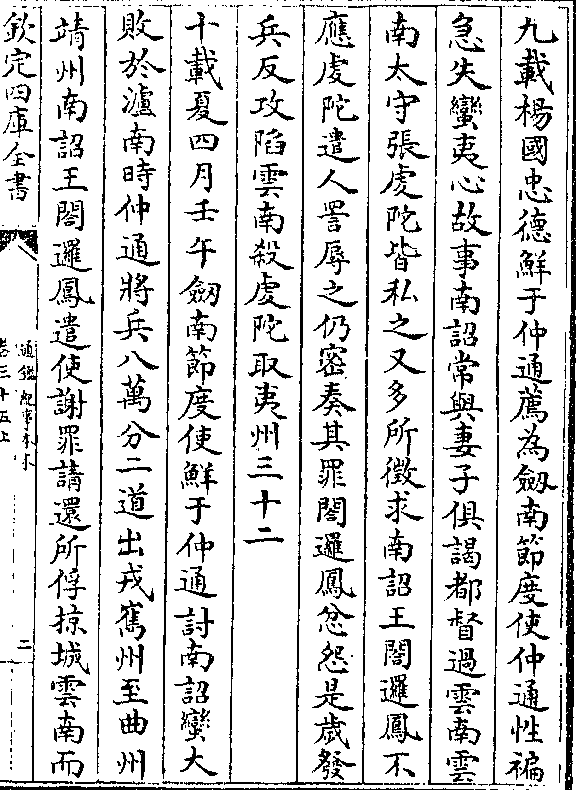 九載楊國忠德鮮于仲通薦為劔南節度使仲通性褊
急失蠻夷心故事南詔常與妻子俱謁都督過雲南雲
南太守張虔陀皆私之又多所徵求南詔王閤邏鳳不
應虔陀遣人詈辱之仍密奏其罪閤邏鳳忿怨是歳發
兵反攻陷雲南殺虔陀取夷州三十二
十載夏四月壬午劔南節度使鮮于仲通討南詔蠻大
敗於瀘南時仲通將兵八萬分二道出戎嶲州至曲州
靖州南詔王閤邏鳳遣使謝罪請還所俘掠城雲南而
欽定四庫全書
通鑑紀事本末
卷三十五上
二